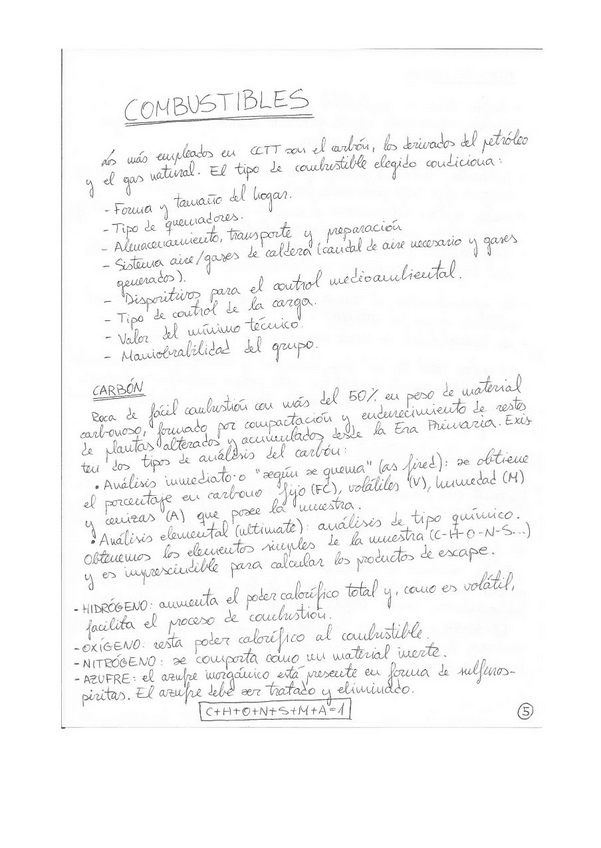 COMBUSTIBLES
Los más empleados en CCTT son el carbón, los derivados del petróleo
y el gas natural. El tipo de combustible elegido condiciona:
- Forma y tamaño del hogar.
- Tipo de quemadores.
- Almacenamiento, transporte y preparación
- Sistema aire/gases de caldera (caudal de aire necesario y gases
generados).
- Dispositivos para el control medioambiental.
- Tipo de control de la carga.
- Valor del mínimo técnico.
- Maniobrabilidad del grupo.
CARBÓN
Roca de fácil combustión con más del 50% en peso de material
carbonoso, formado por compactación y endurecimiento de restos
de plantas alterados y acumulados desde la Era Primaria. Exis
ten dos tipos de análisis del carbón:
• Análisis inmediato o "según se quema" (as fired): se obtiene
el porcentaje en carbono fijo (FC), volátiles (V), humedad (M)
y cenizas (A) que posee la muestra.
• Análisis elemental (ultimate): análisis de tipo químico.
Obtenemos los elementos simples de la muestra (C-H-O-N-S...)
y es imprescindible para calcular los productos de escape.
- HIDRÓGENO: aumenta el poder calorífico total y, como es volátil,
facilita el proceso de combustión.
- OXÍGENO: resta poder calorífico al combustible.
- NITRÓGENO: se comporta como un material inerte.
- AZUFRE: el azufre inorgánico está presente en forma de sulfuros-
piritas. El azufre debe ser tratado y eliminado.
C+H+O+N+S+M+A=1
5